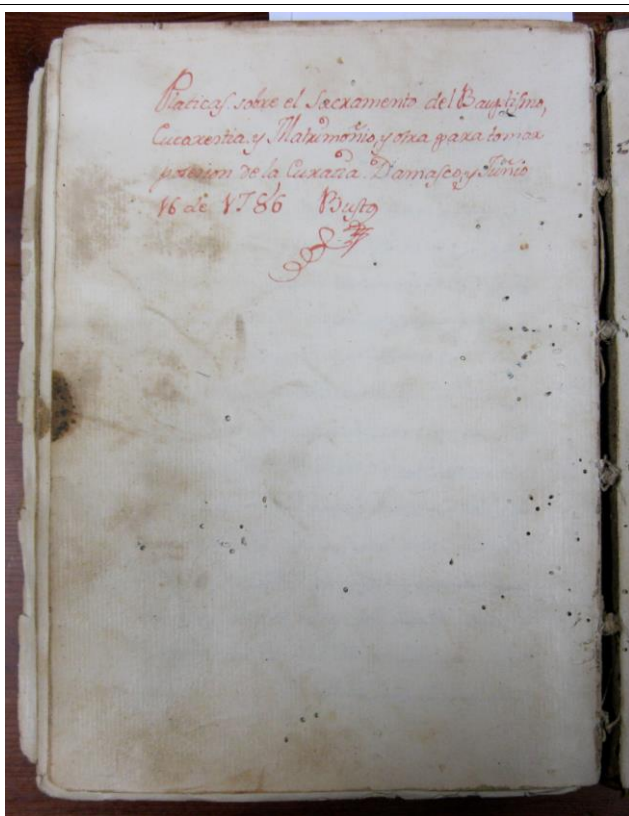 Platicas sobre el Sacramento del Bauptismo,
Eucaxestia, y Matrimoñio, y otra para tomar
posesion de la Curatia. Damasco, y Junio
16 de 1786 Busto